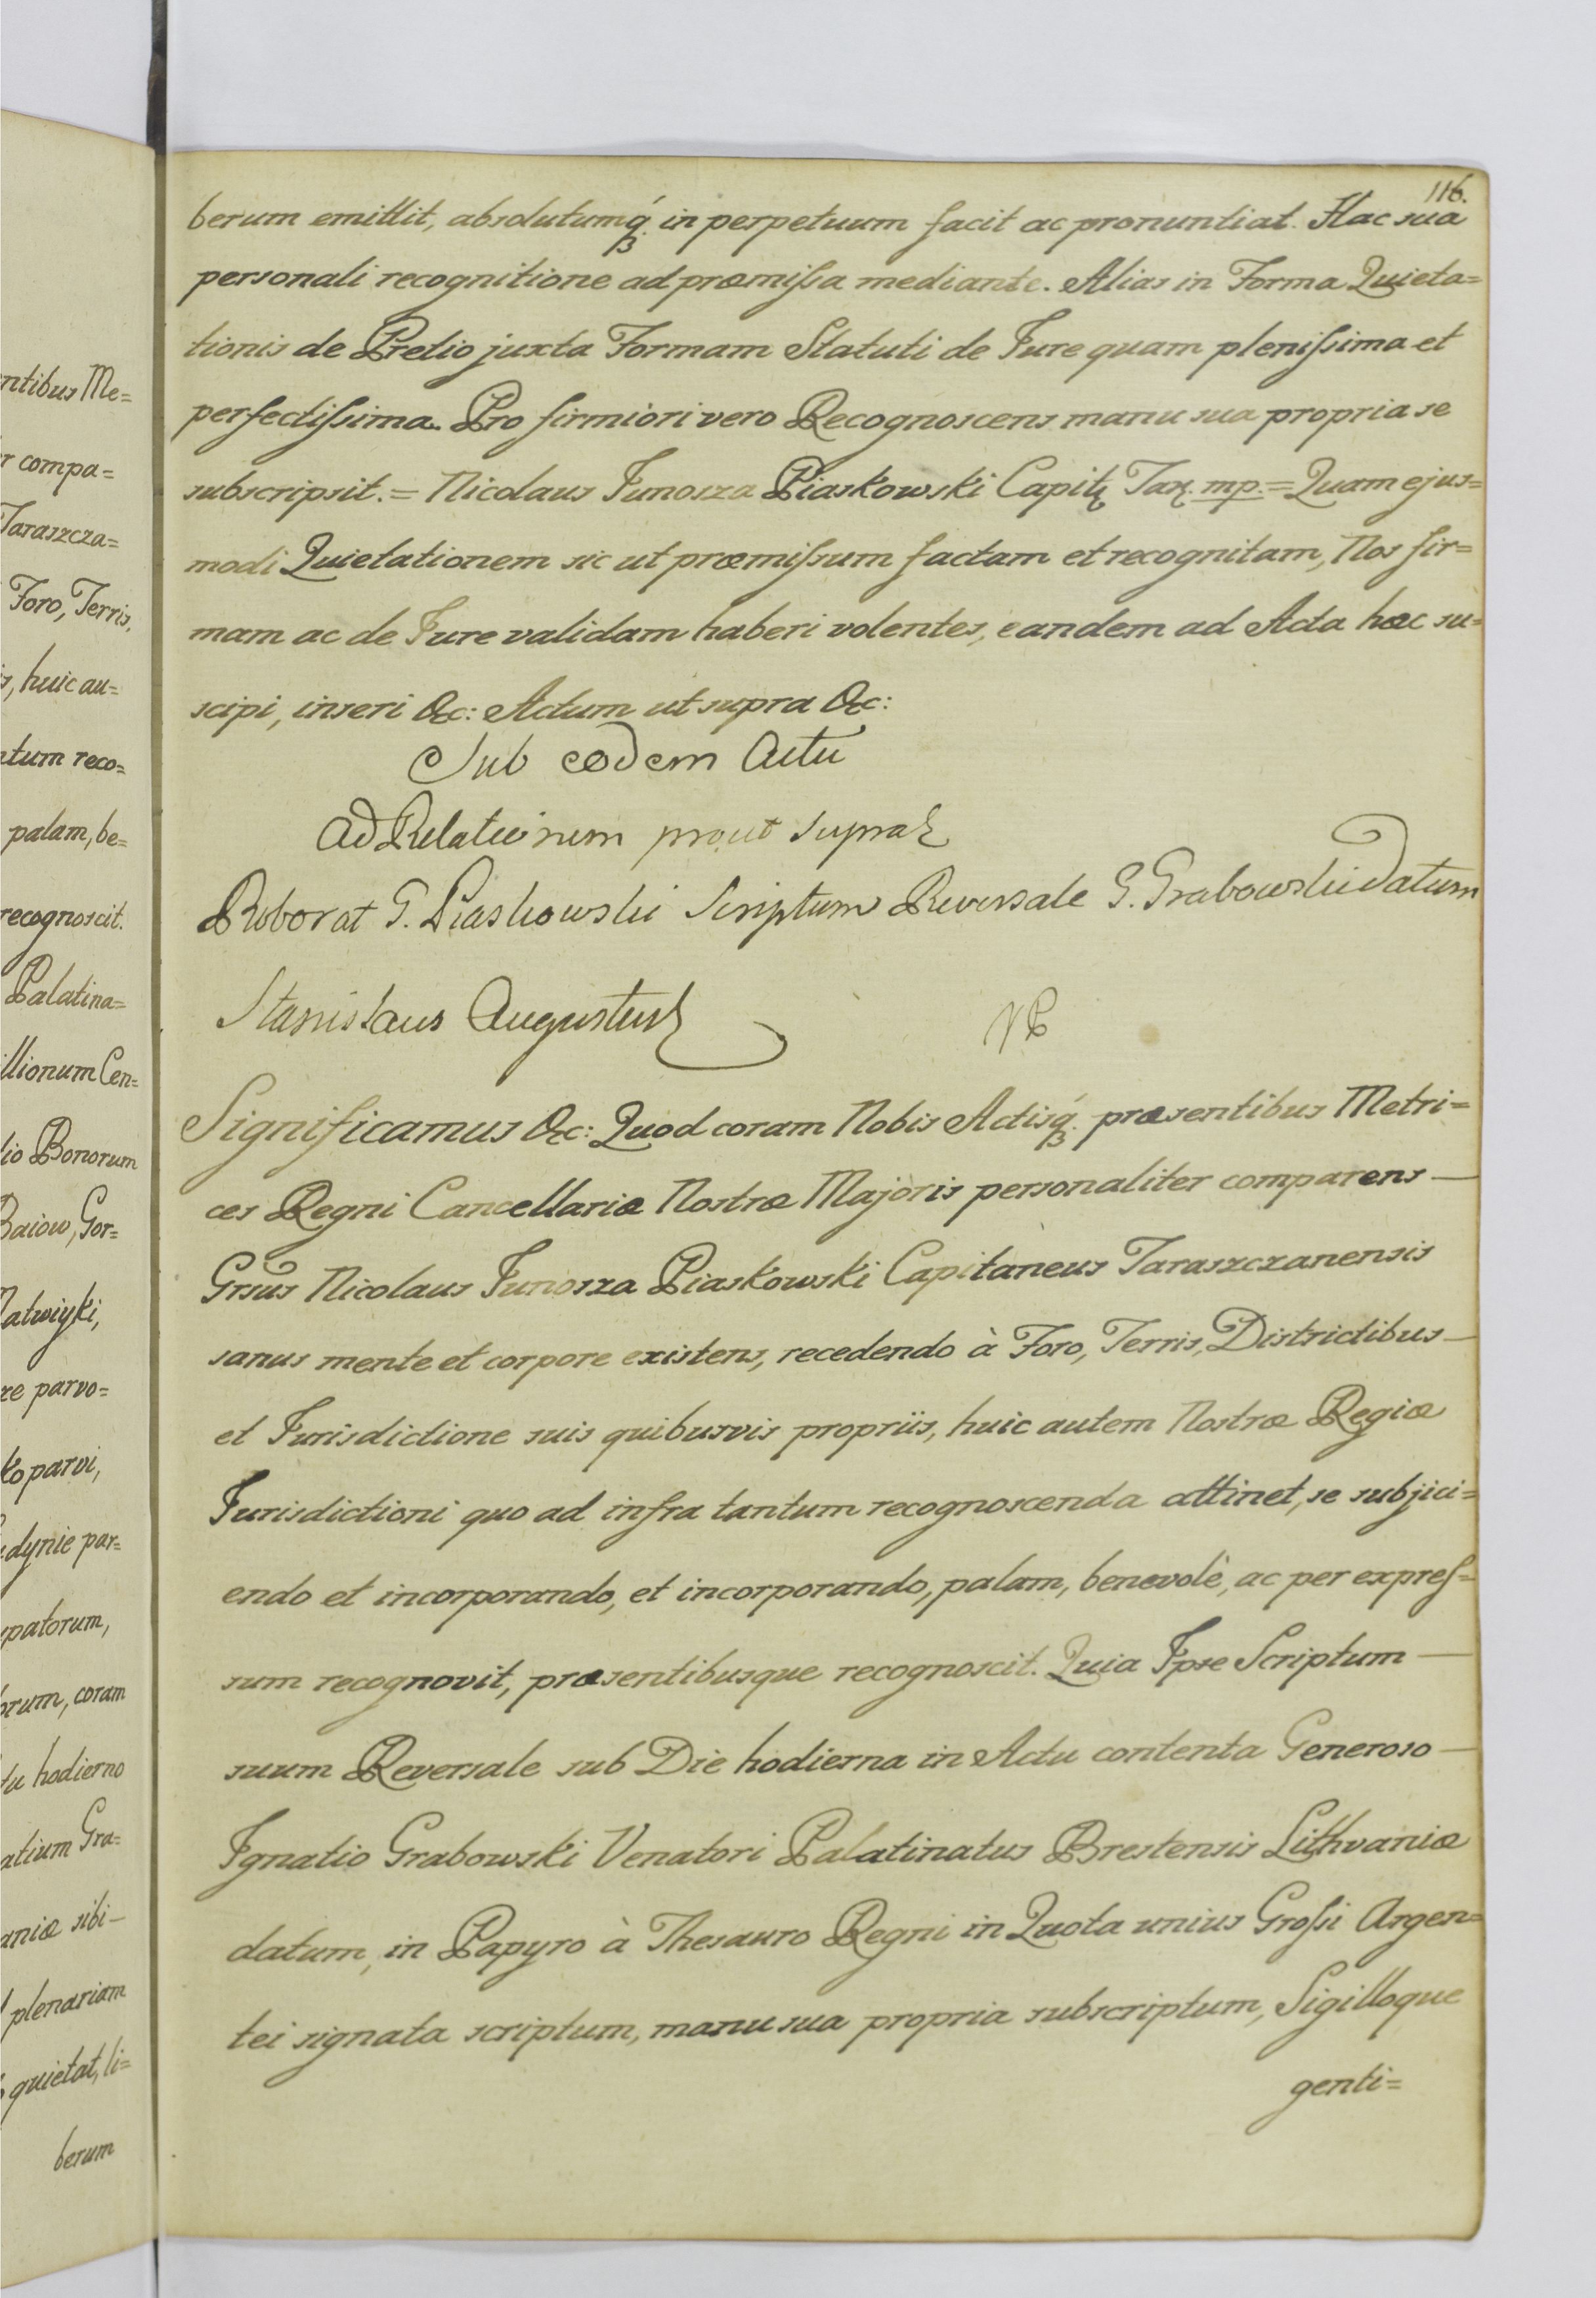 entibus Me=
r compa=
Taraszcza=
Foro, Terris,
s, huic au=
tum reco=
palam, be=
recognoscit.
Palatina=
illionum Cen=
lio Bonorum
Baiow, Gor=
Matwiyki,
re parvo=
ko parvi,
dynie par=
patorum,
orum, coram
tu hodierno
atium Gra=
aniæ sibi
plenariam
quietat, li=
berum
116.
berum emittit, absolutumq́ꝫ in perpetuum facit ac pronuntiat. Hac sua
personali recognitione ad præmiſsa mediante. Alias in Forma Quieta=
tionis de Pretio juxta Formam Statuti de Jure quam pleniſsima et
perfectiſsima. Pro firmiori vero Recognoscens manu sua propria se
subscripsit. = Nicolaus Junosza Piaskowski Capit. Tar. mp. = Quam ejus=
modi Quietationem sic ut præmiſsum factam et recognitam, Nos fir=
mam ac de Jure validam haberi volentes, eandem ad Acta hæc su=
scipi, inseri &c: Actum ut supra &c:
Sub eodem Actu
Ad Relationem prout supra
Roborat G. Piaskowski Scriptum Reversale G. Grabowski datum
Stanislaus Augustus
Significamus &c: Quod coram Nobis Actisq́ꝫ præsentibus Metri=
ces Regni Cancellariæ Nostræ Majoris personaliter comparens —
Grsus Nicolaus Junosza Piaskowski Capitaneus Taraszczanensis
sanus mente et corpore existens, recedendo à Foro, Terris, Districtibus —
et Jurisdictione suis quibusvis propriis, huic autem Nostræ Regiæ
Jurisdictioni quo ad infra tantum recognoscenda attinet, se subjici=
endo et incorporando, et incorporando, palam, benevolè, ac per expreſ=
sum recognovit, præsentibusque recognoscit. Quia Ipse Scriptum —
suum Reversale sub Die hodierna in Actu contenta Generoso —
Ignatio Grabowski Venatori Palatinatus Brestensis Lithvaniæ
datum, in Papyro à Thesauro Regni in Quota unius Groſsi Argen=
tei signata scriptum, manu sua propria subscriptum, Sigilloque
genti=